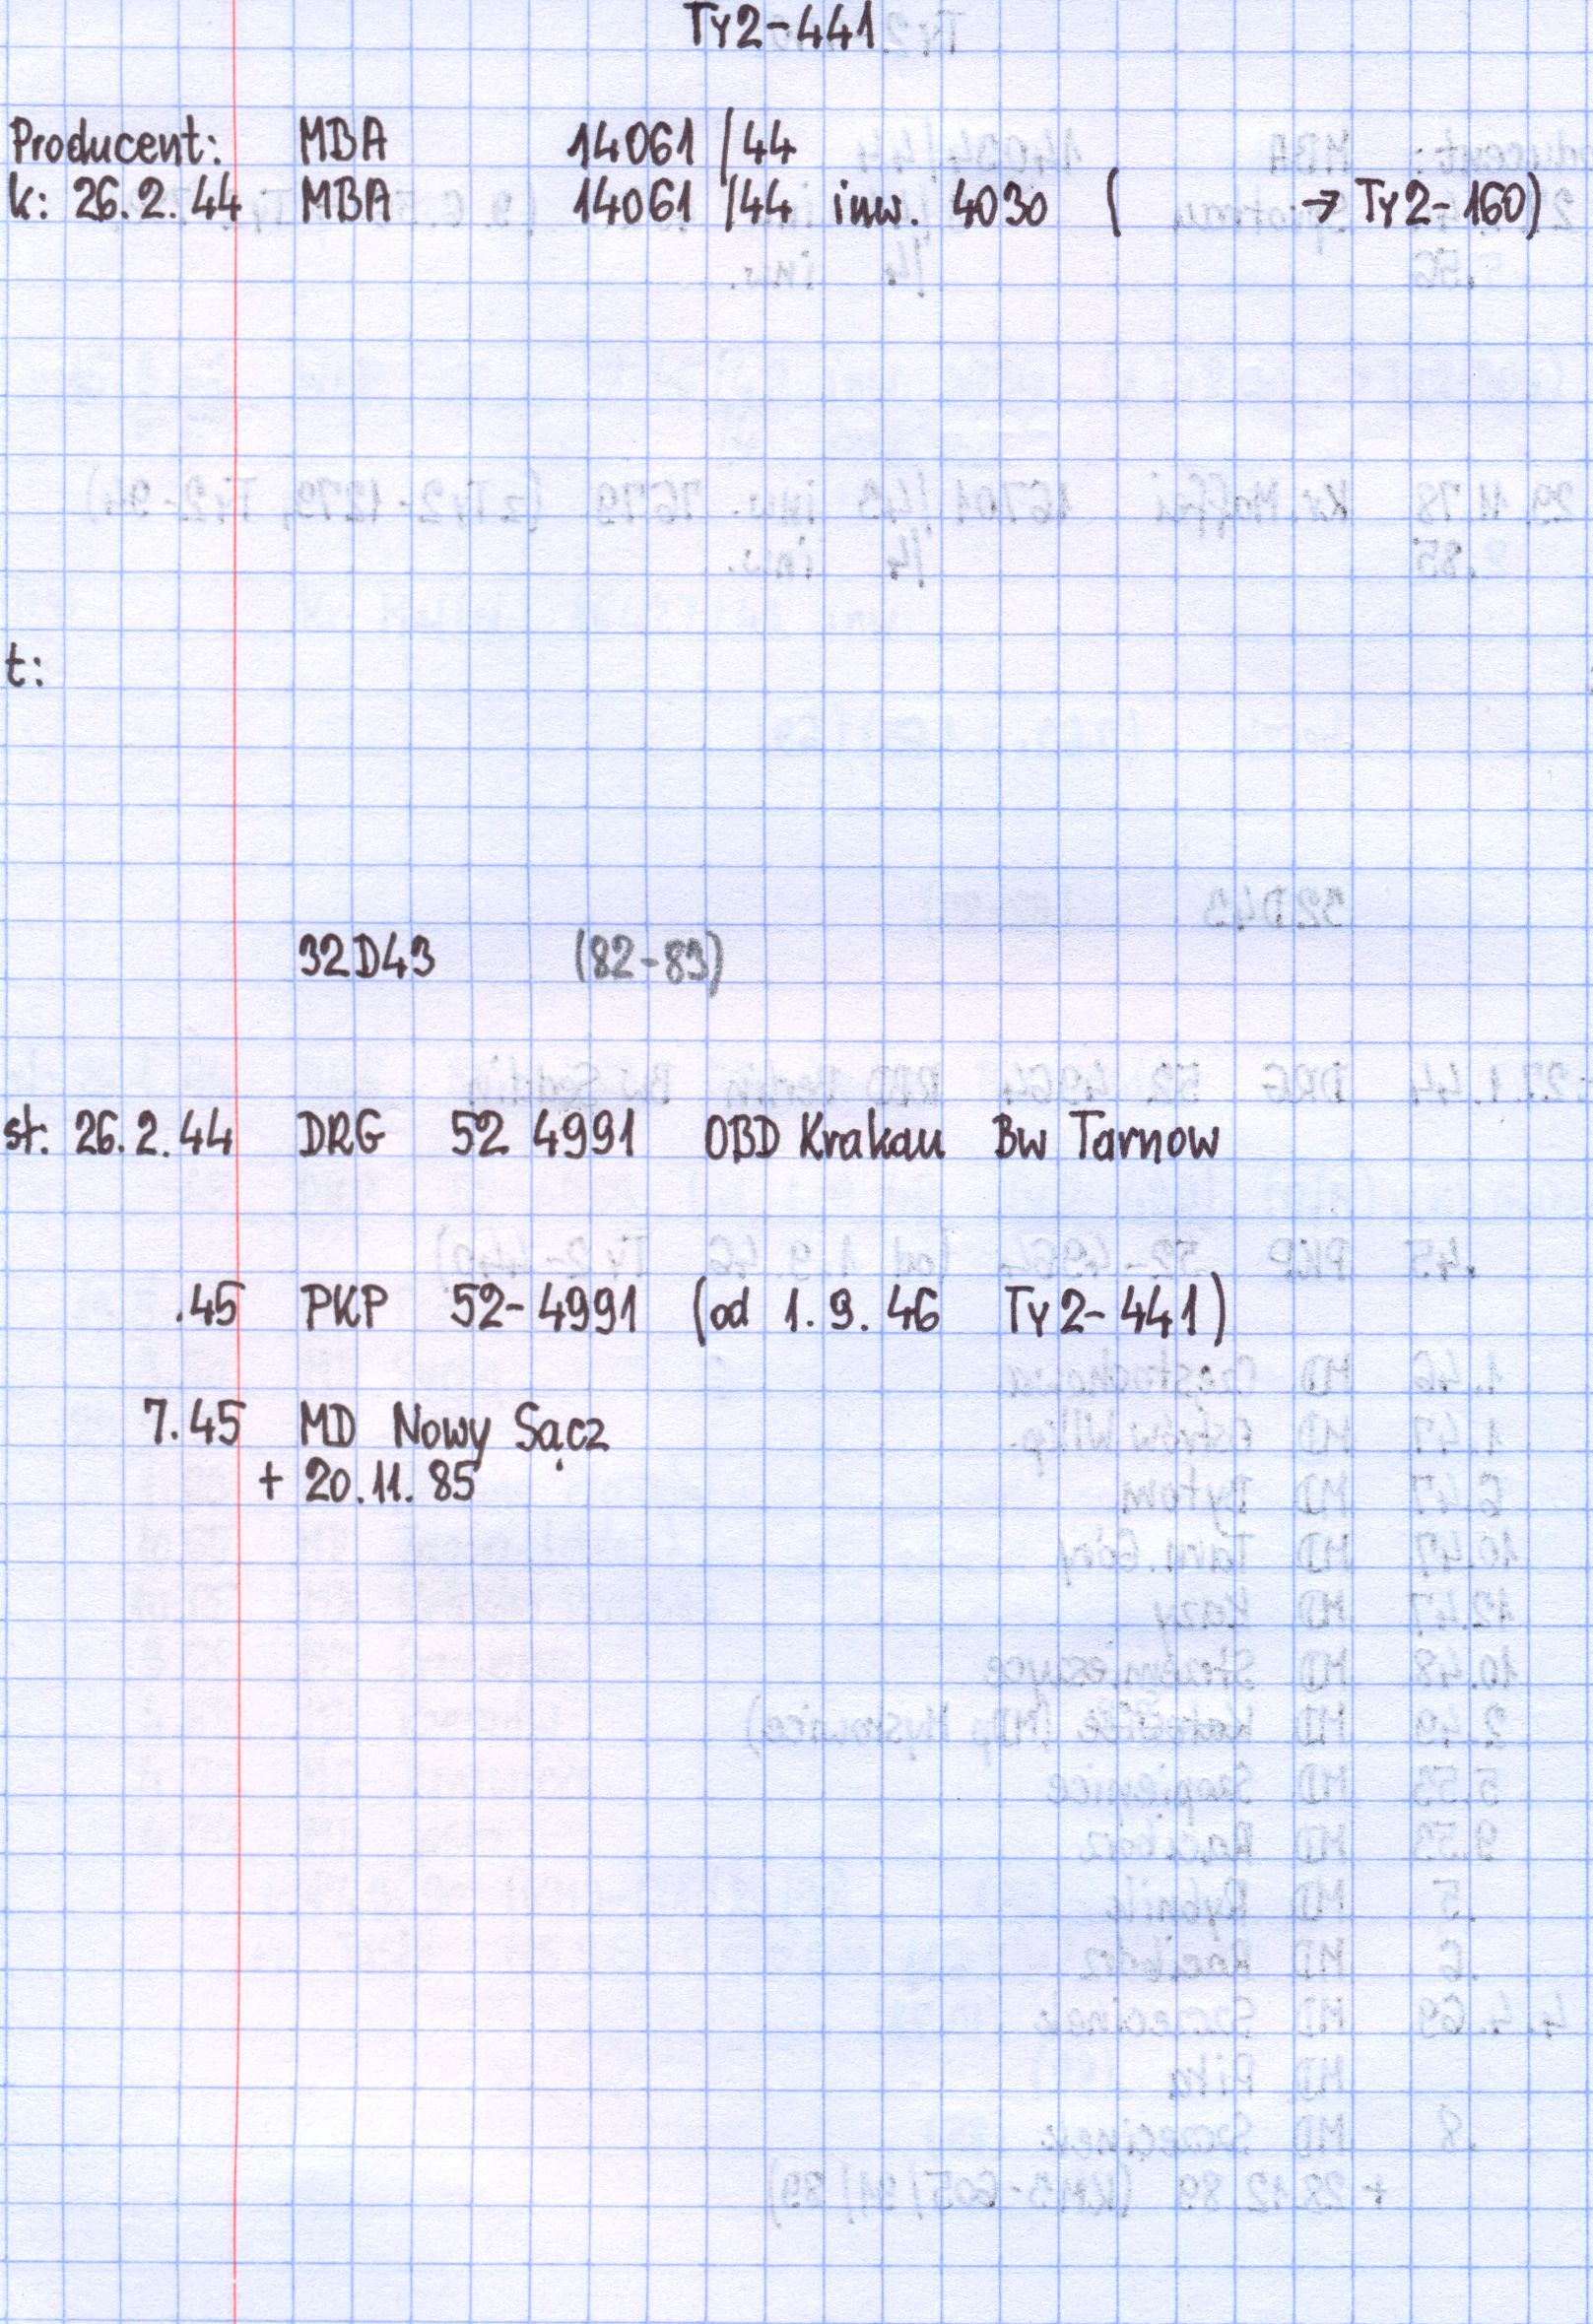 Ty2-441
Producent: MBA 14061 /44
k: 26.2.44 MBA 14061 /44 inw. 4030 ( → Ty2-160)
t:
32D43 (82-83)
st: 26.2.44 DRG 52 4991 OBD Krakau Bw Tarnow
.45 PKP 52-4991 (od 1.9.46 Ty2-441)
7.45 MD Nowy Sącz
+ 20.11.85